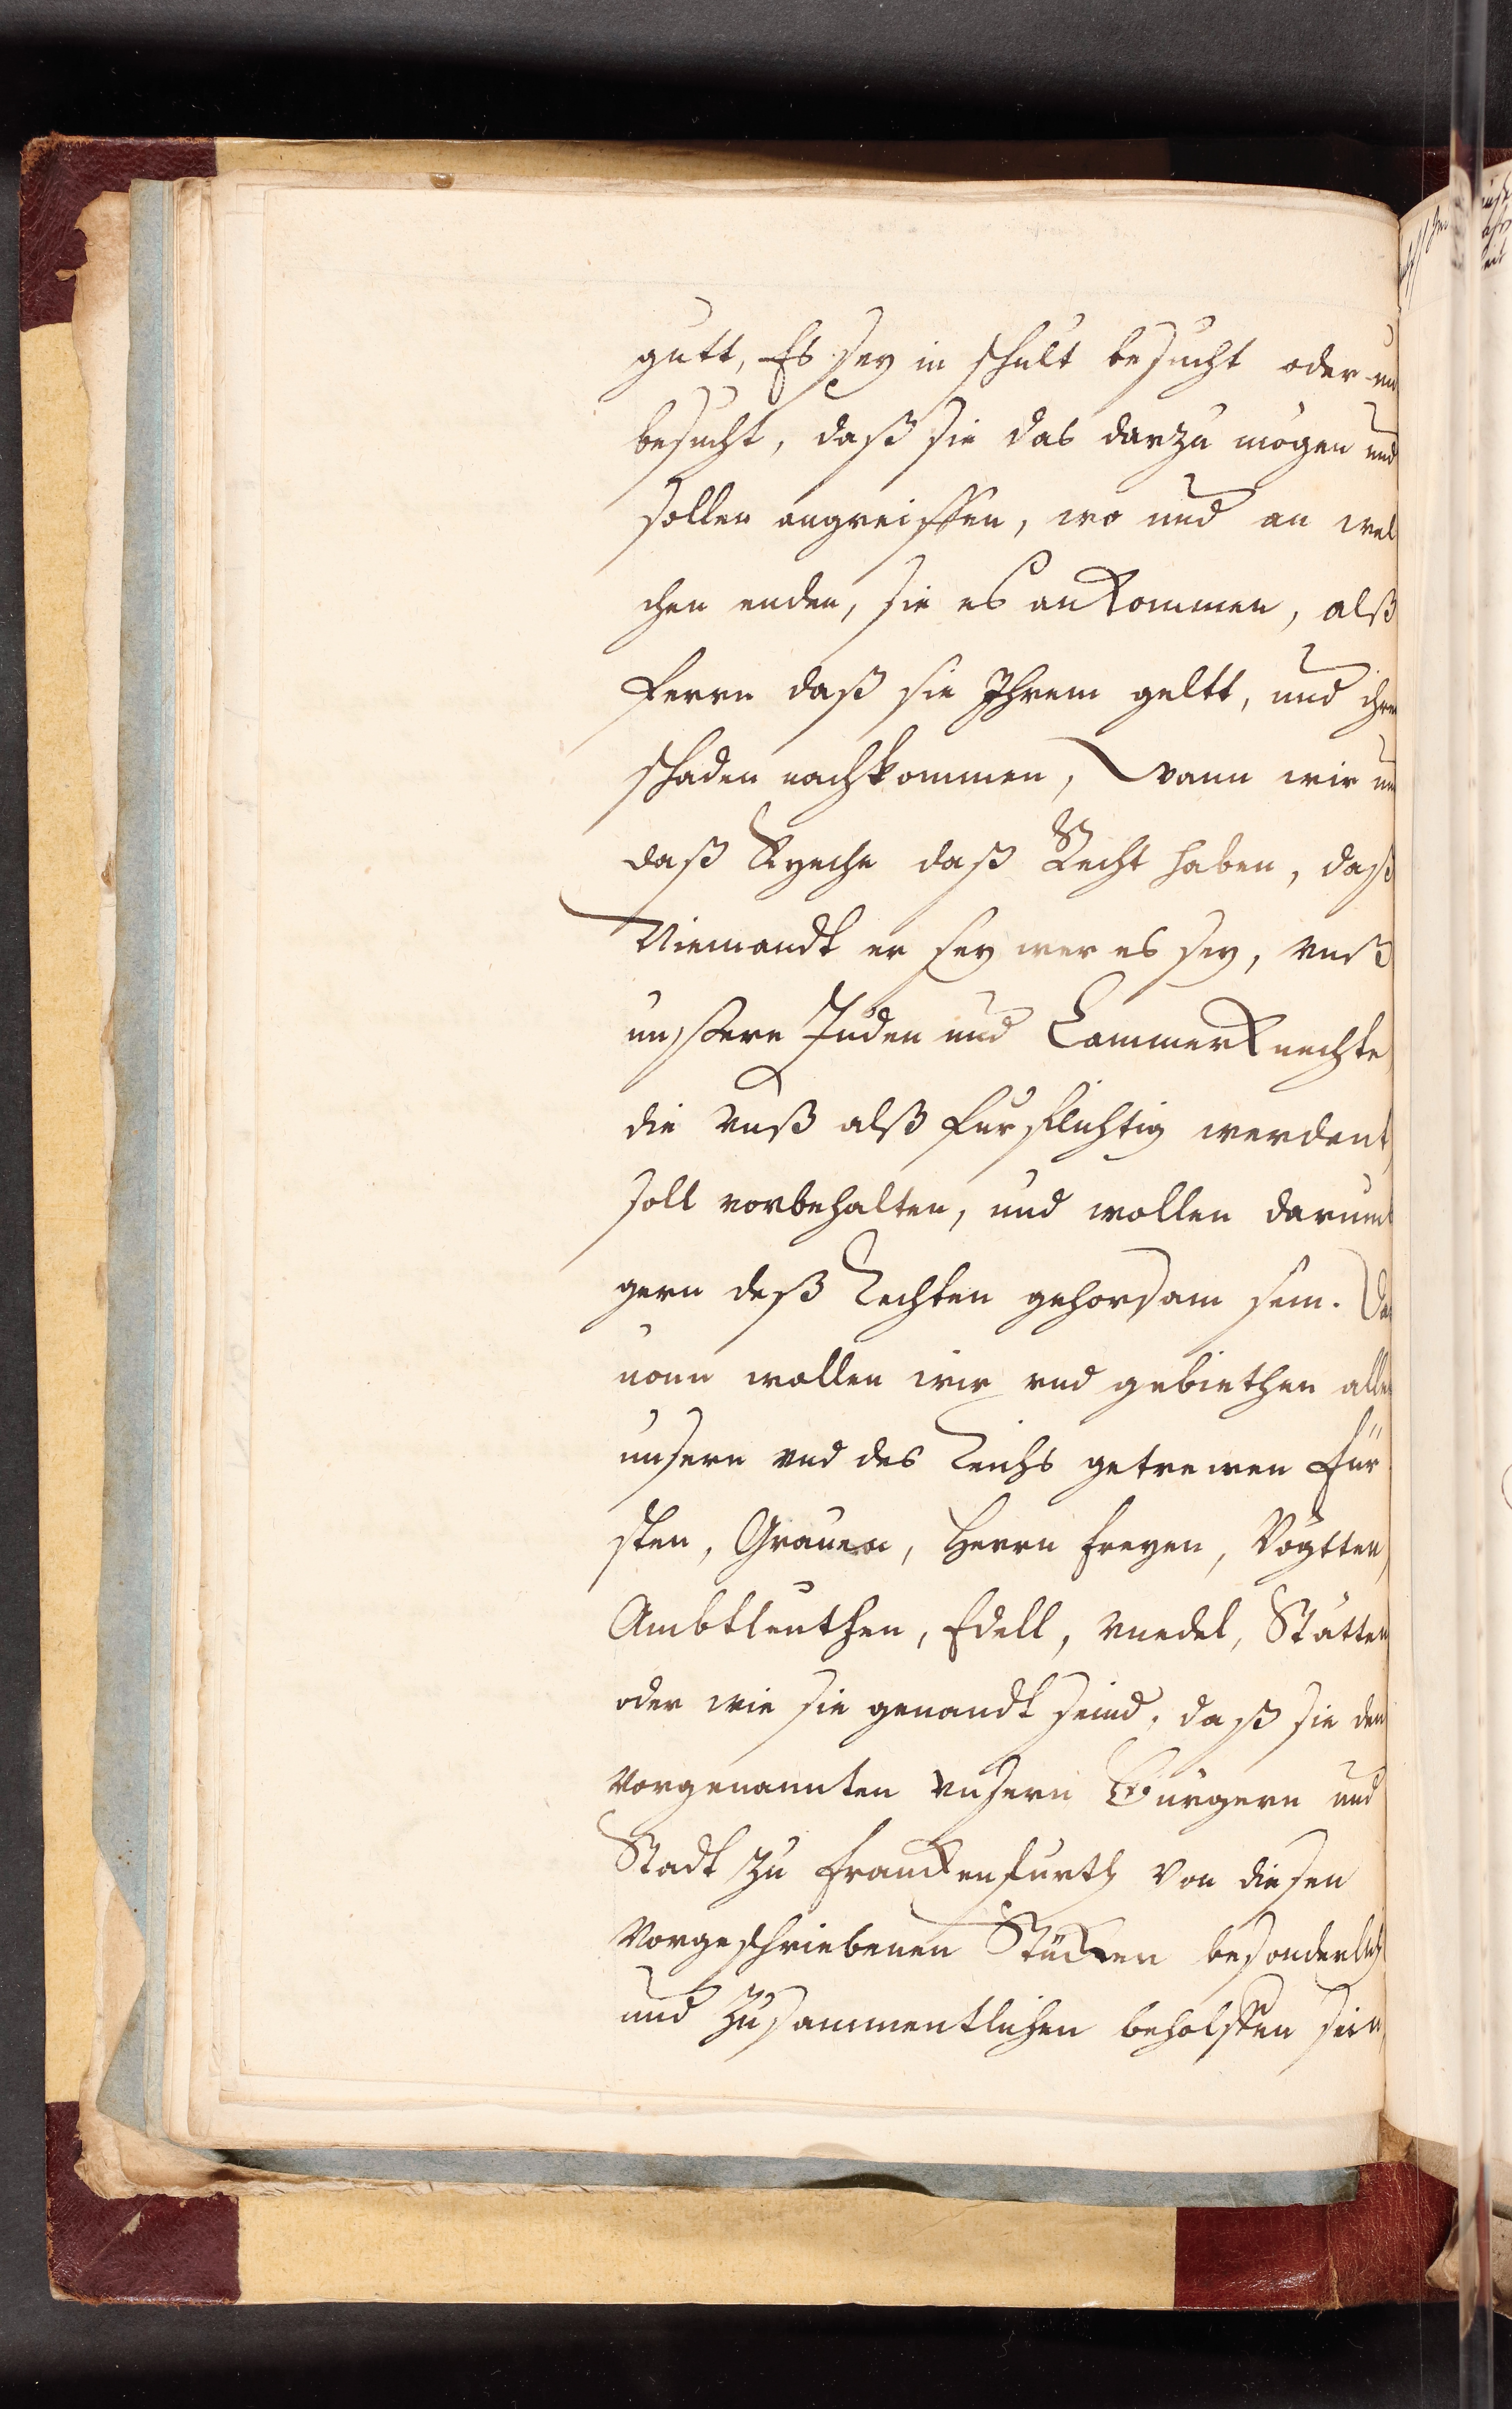 gutt, Es sey in schult besucht oder un
besucht, daß sie das darzu mögen und
sollen angreiffen, wo und an wel
chen enden, sie es ankommen, alß
ferrn daß sie Ihrem geltt, und ihrem
schaden nachkommen, wann wir und
daß Ryche daß Recht haben, daß
Niemandt er sey wer es sey, vnß
unssere Juden und Cammerknechte
die vnß alß fürflichtig werdent,
soll vorbehalten, und wollen darumb
gern deß Rechten gehorsam sein. Da
uonn wollen wir vnd gebiethen allen
unsern vnd des Reichs getrewen Für
sten, Grauen, Herrn freyen, Vögtten,
Ambtleuthen, Edell, vnedel, Stätten
oder wie sie genandt seind, daß sie den
vorgenannten vnsern Bürgern und
Stadt zu Franckenfurth von diesen
vorgeschriebenen Stücken besonderlich
und zusammentlichen beholffen sein,